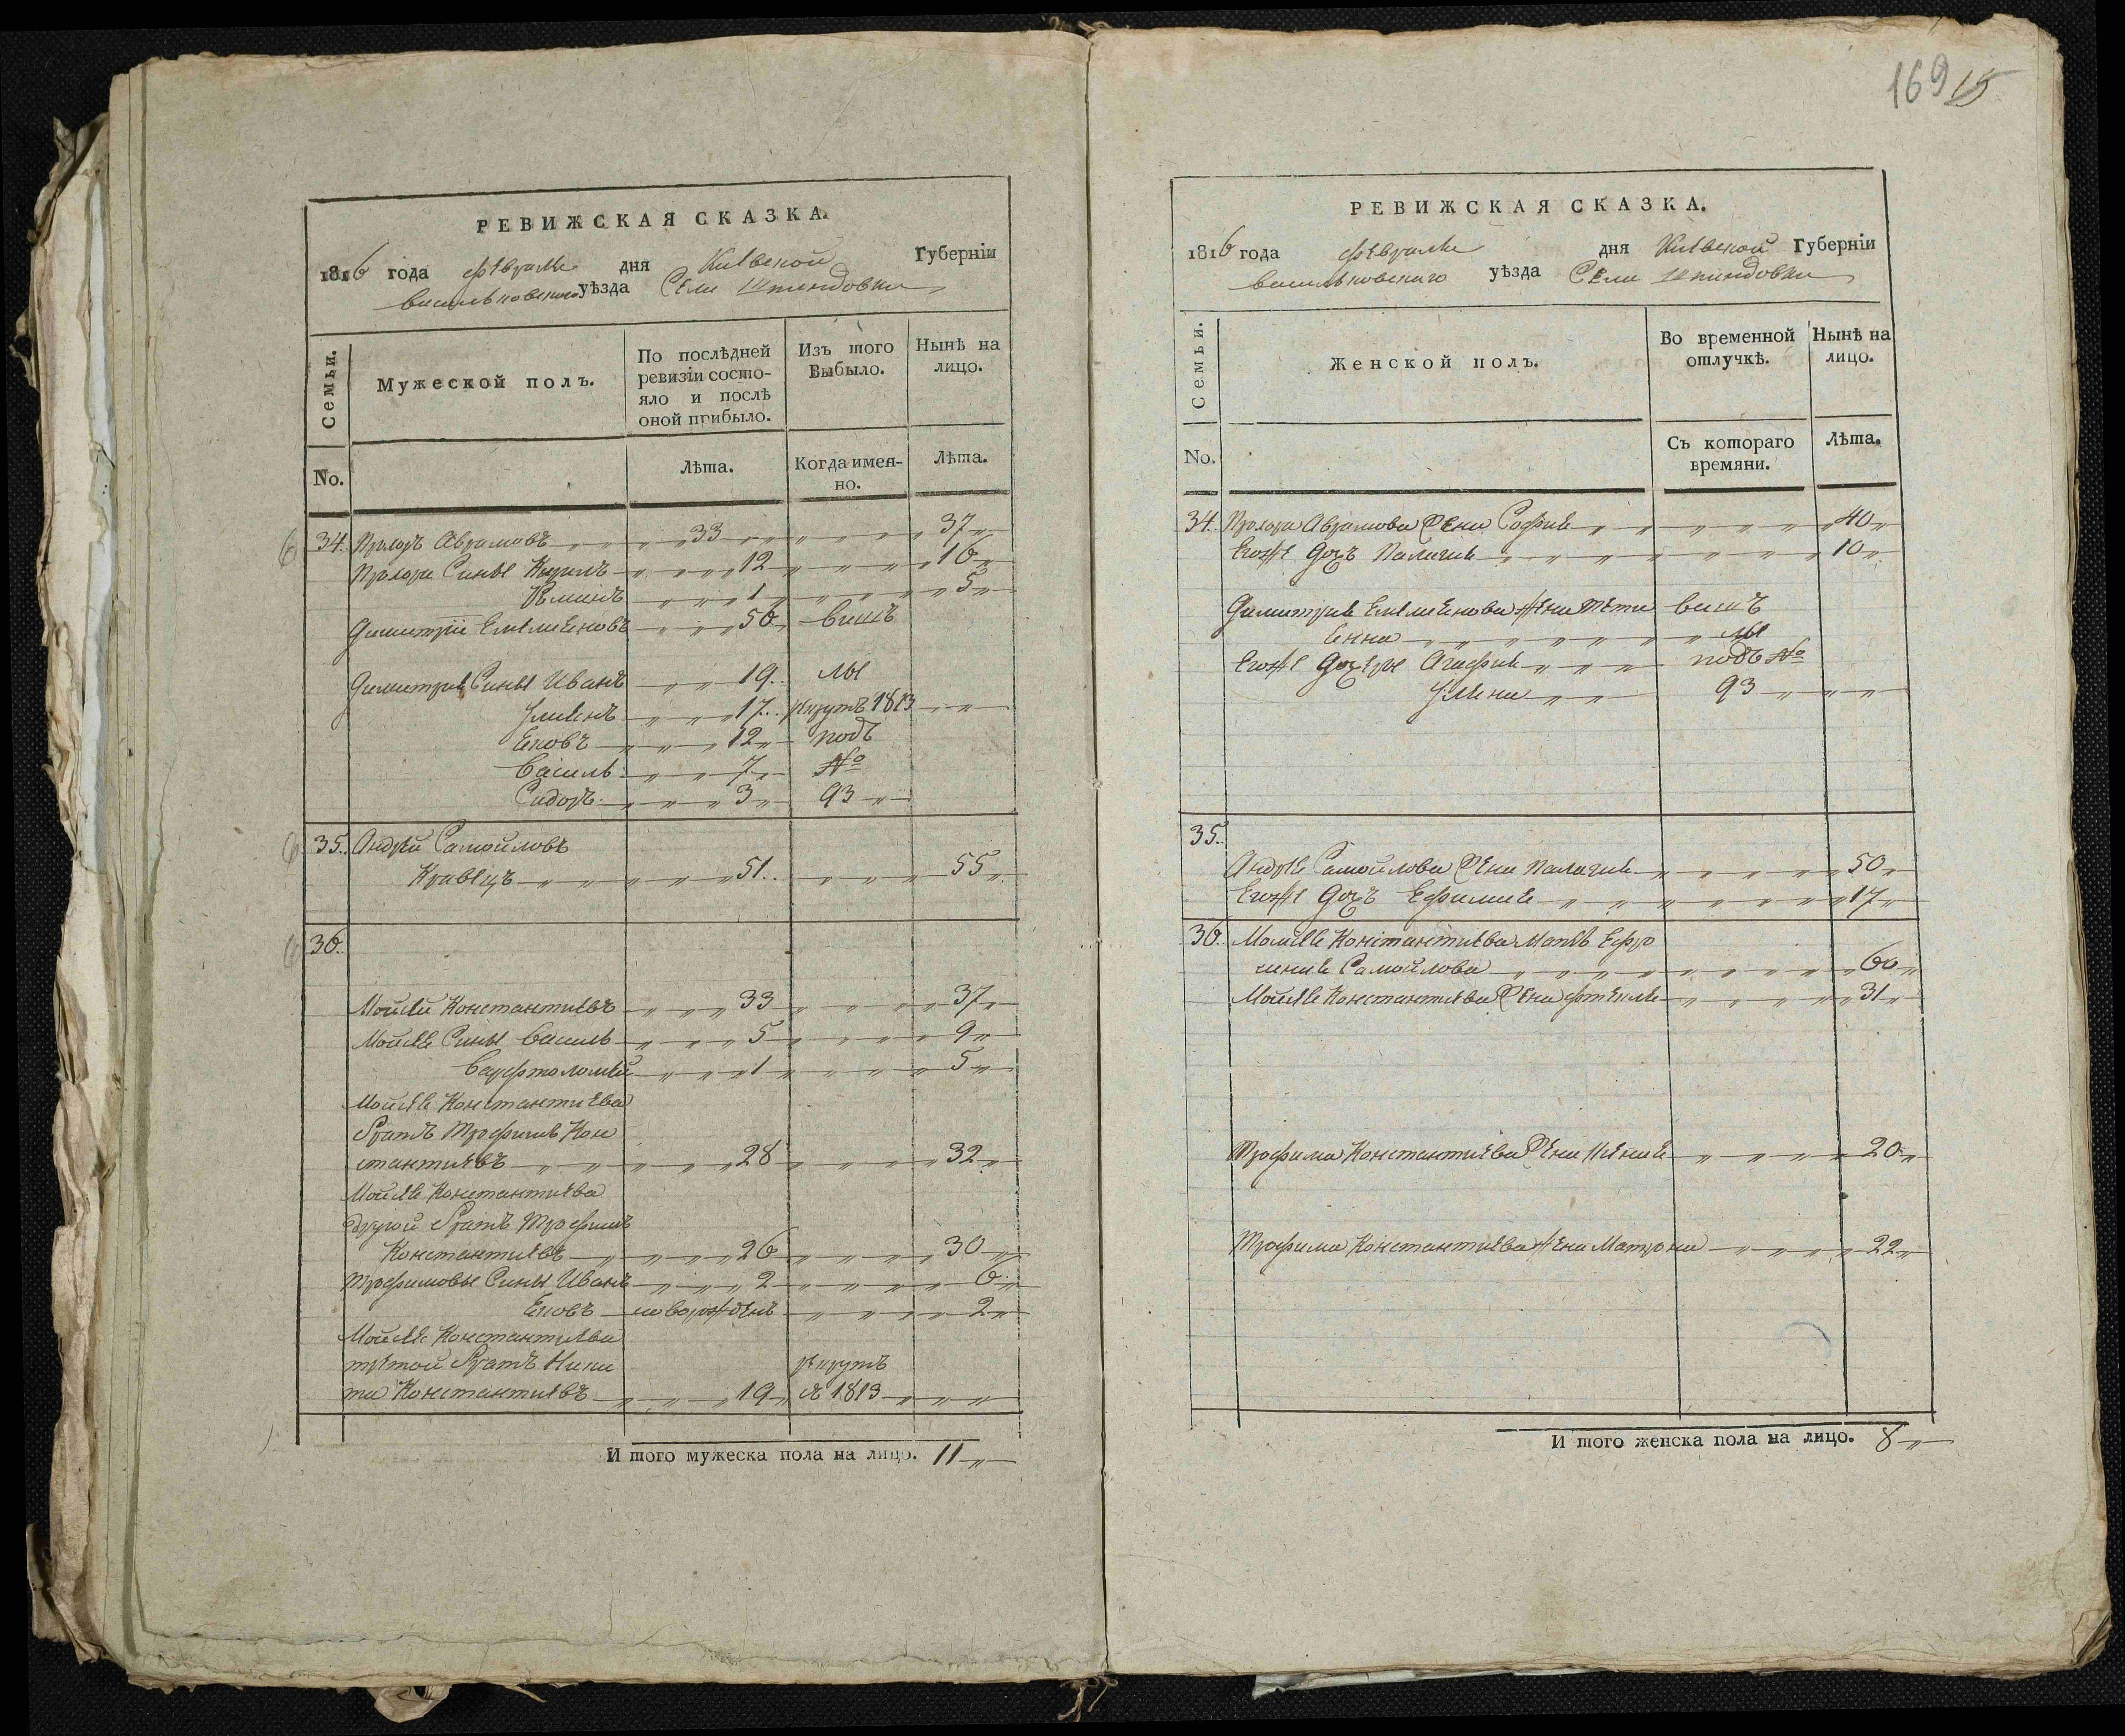 169 15
РЕВИЖСКАЯ СКАЗКА.
1816 года февраля дня Киевской Губерніи
васильковского уѣзда Села Шпендовки
Семьи. Мужеской полъ. По послѣдней ревизіи состояло и послѣ оной прибыло. Изъ того Выбыло. Нынѣ на лицо.
No. Лѣта. Когда имен-но. Лѣта.
34. Прохоръ Аврамовъ 33 37
Прохора Сины Кирилъ 12 16
1 5
Димитрій Емелиеновъ 56 вишъ
Димитрия Сины Иванъ 19 лы
17 рекрутъ 1813
Ековъ 12 подъ
Василь 7 №
Сидоръ 3 93
35. Андрей Самойловъ
Кравецъ 51 55
36.
Мойсей Константиевъ 33 37
Мойсея Сины Василь 5 9
Варфтоломей 1 5
Мойсея Константиева
братъ Трофимъ Кон
стантиевъ 28 32
Мойсея Константиева
другой братъ Трофимъ
Константиевъ 26 30
Трофимовы Сины Иванъ 2 6
Ековъ новорожденъ 2
Мойсея Константиева
третой братъ Ники рекрутъ
та Константиевъ 19 1813
И того мужеска пола на лицо. 11
РЕВИЖСКАЯ СКАЗКА.
1816 года февраля дня Киевской Губерніи
васильковского уѣзда Села Шпендовки
Семьи. Женской полъ. Во временной отлучкѣ. Нынѣ на лицо.
No. Съ котораго времяни. Лѣта.
34. Прохора Аврамова жена София 40
Егоже дочъ Палагия 10
Димитрия Емелиенова жена Тети вишъ
енна лы
Егоже дочери Агафия подъ №
93
35.
Андрея Самойлова жена Палагия 50
Егоже дочъ Ефимия 17
36. Мойсея Константиева мать Ефро
синия Самойлова 60
Мойсея Константиева жена Фтекля 31
Трофима Константиева жена Ксения 20
Трофима Константиева жена Матрона 22
И того женска пола на лицо. 8